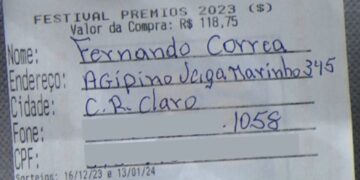 FESTIVAL PREMIOS 2023 ($)
Valor da Compra: R$ 118,75
Nome: Fernando Correa
Endereço: Agipino Veiga Marinho 345
Cidade: C.R. Claro
Fone: .1058
CPF:
Sorteios: 16/12/23 e 13/01/24